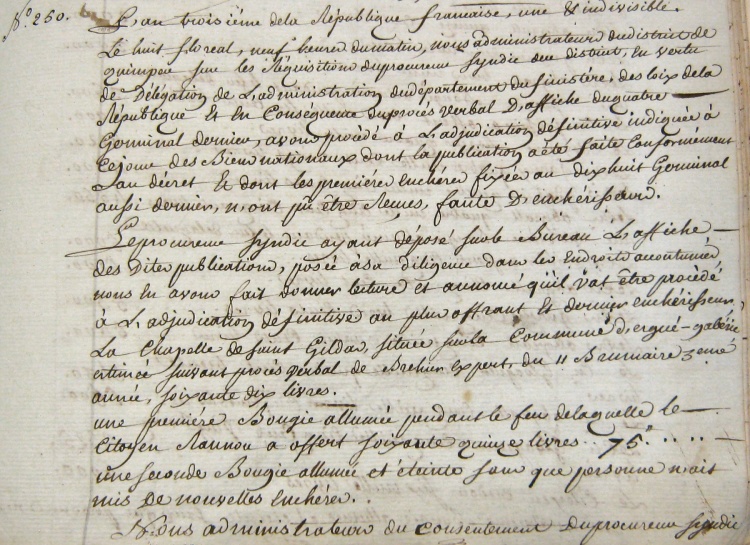 N.o 250. L'an troisiéme dela République francaise, une & indivisible.
Le huit floreal, neuf heures du matin, nous administrateurs du district de
quimper sur les Réquisitions du procureur Syndic du district, En vertu
de Délégation de L'administration du département du finistére, des loix dela
République Et En Conséquence du procés verbal D'affiche du quatre
Germinal dernier, avons procédé à L'adjudication définitive indiquée à
Ce jour des Biens nationaux dont la publication a été faite Conformément
au décret Et dont les premiéres encheres fixées au dixhuit Germinal
aussi dernier, n'ont pû être Reçues, faute D'enchérisseurs.
Le procureur Syndic ayant déposé sur le Bureau L'affiche
des Dites publications, posée à sa diligence dans les Endroits accoutumés
nous En avons fait donner lecture et annoncé qu'il vat être procédé
à L'adjudication définitive au plus offrant Et dernier enchérisseur,
La Chapelle de Saint Gildas, située sur la Commune d'ergué-gabéric
estimée suivant procés verbal de Brehier Expert, du 11 Brumaire 3eme
année, soixante dix livres.
une premiére Bougie allumée pendant le feu delaquelle le
Citoyen Rannou a offert soixante quinze livres .. 75.# ....
une seconde Bougie allumée et éteinte sans que personne n'ait
mis De nouvelles Encheres.
Nous administrateurs du consentement Du procureur Syndic